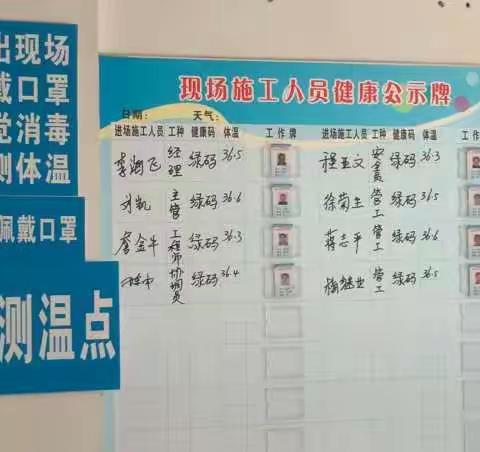 出现场
戴口罩
消毒
测体温
佩戴口罩
测温点
现场施工人员健康公示牌
日期: 天气:
进场施工人员 工种 健康码 体温 工作牌 进场施工人员 工种 健康码 体温 工作牌
李湘飞 经理 绿码 36.5 程亚文 安全员 绿码 36.3
刘凯 主管 绿码 36.6 徐菊生 管工 绿码 36.5
金牛 工程师 绿码 36.3 蒋志平 管工 绿码 36.6
协调员 绿码 36.4 管工 绿码 36.5